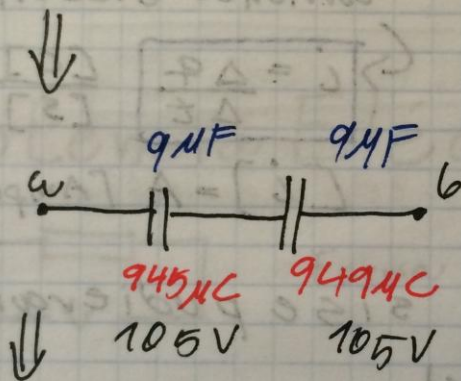 i = Δq
Δt
9μF 9μF
a b
945μC 949μC
105V 105V